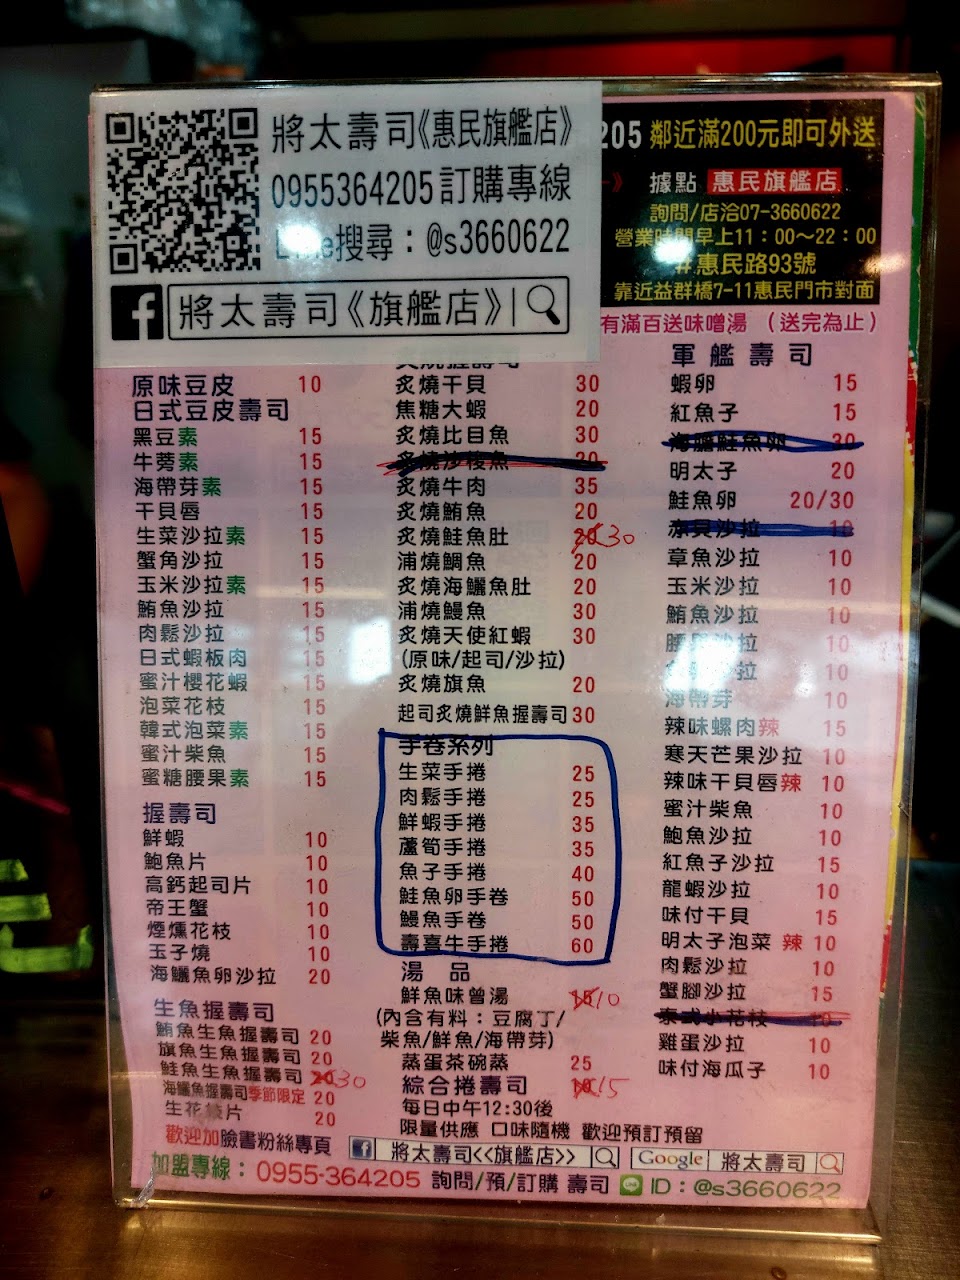 將太壽司《惠民旗艦店》
0955364205訂購專線
Line搜尋：@s3660622
將太壽司《旗艦店》
205 鄰近滿200元即可外送
據點 惠民旗艦店
詢問/店洽07-3660622
營業時間早上11：00～22：00
#惠民路93號
靠近益群橋7-11惠民門市對面
有滿百送味噌湯（送完為止）
原味豆皮 10
日式豆皮壽司
黑豆素 15
牛蒡素 15
海帶芽素 15
干貝唇 15
生菜沙拉素 15
蟹角沙拉 15
玉米沙拉素 15
鮪魚沙拉 15
肉鬆沙拉 15
日式蝦板肉 15
蜜汁櫻花蝦 15
泡菜花枝 15
韓式泡菜素 15
蜜汁柴魚 15
蜜糖腰果素 15
握壽司
鮮蝦 10
鮑魚片 10
高鈣起司片 10
帝王蟹 10
煙燻花枝 10
玉子燒 10
海鱺魚卵沙拉 20
生魚握壽司
鮪魚生魚握壽司 20
旗魚生魚握壽司 20
鮭魚生魚握壽司 20 30
海鱺魚握壽司季節限定 20
生花枝片 20
炙燒干貝 30
焦糖大蝦 20
炙燒比目魚 30
炙燒沙梭魚 20
炙燒牛肉 35
炙燒鮪魚 20
炙燒鮭魚肚 20 30
浦燒鯛魚 20
炙燒海鱺魚肚 20
浦燒鰻魚 30
炙燒天使紅蝦 30
(原味/起司/沙拉)
炙燒旗魚 20
起司炙燒鮮魚握壽司 30
手卷系列
生菜手捲 25
肉鬆手捲 25
鮮蝦手捲 35
蘆筍手捲 35
魚子手捲 40
鮭魚卵手卷 50
鰻魚手卷 50
壽喜牛手捲 60
湯 品
鮮魚味曾湯 15 10
(內含有料：豆腐丁/
柴魚/鮮魚/海帶芽)
蒸蛋茶碗蒸 25
綜合捲壽司 15
每日中午12:30後
限量供應 口味隨機 歡迎預訂預留
軍艦壽司
蝦卵 15
紅魚子 15
海膽鮭魚卵 30
明太子 20
鮭魚卵 20/30
赤貝沙拉 10
章魚沙拉 10
玉米沙拉 10
鮪魚沙拉 10
沙拉 10
沙拉 10
海帶芽 10
辣味螺肉辣 15
寒天芒果沙拉 10
辣味干貝唇辣 10
蜜汁柴魚 10
鮑魚沙拉 10
紅魚子沙拉 15
龍蝦沙拉 10
味付干貝 15
明太子泡菜 辣 10
肉鬆沙拉 10
蟹腳沙拉 15
泰式小花枝 10
雞蛋沙拉 10
味付海瓜子 10
歡迎加臉書粉絲專頁 將太壽司<<旗艦店>> Google 將太壽司
加盟專線：0955-364205 詢問/預/訂購 壽司 LINE ID：@s3660622